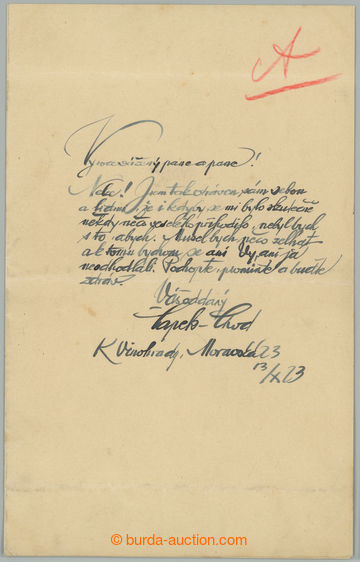 A
Vzácný pane a pane!
Nelze! Jsem tak otráven sám sebou
a lidmi, že i kdyby se mi bylo skutečně
někdy něco veselého přihodilo, nebyl bych
s to, abych. Musel bych něco selhat
a k tomu bychom se ani Vy, ani já
neodhodlali. Pochopte, promiňte a buďte
zdráv.
Váš oddaný
Čapek-Chod
K Vinohrady, Moravská 23
13/X 23
© burda-auction.com